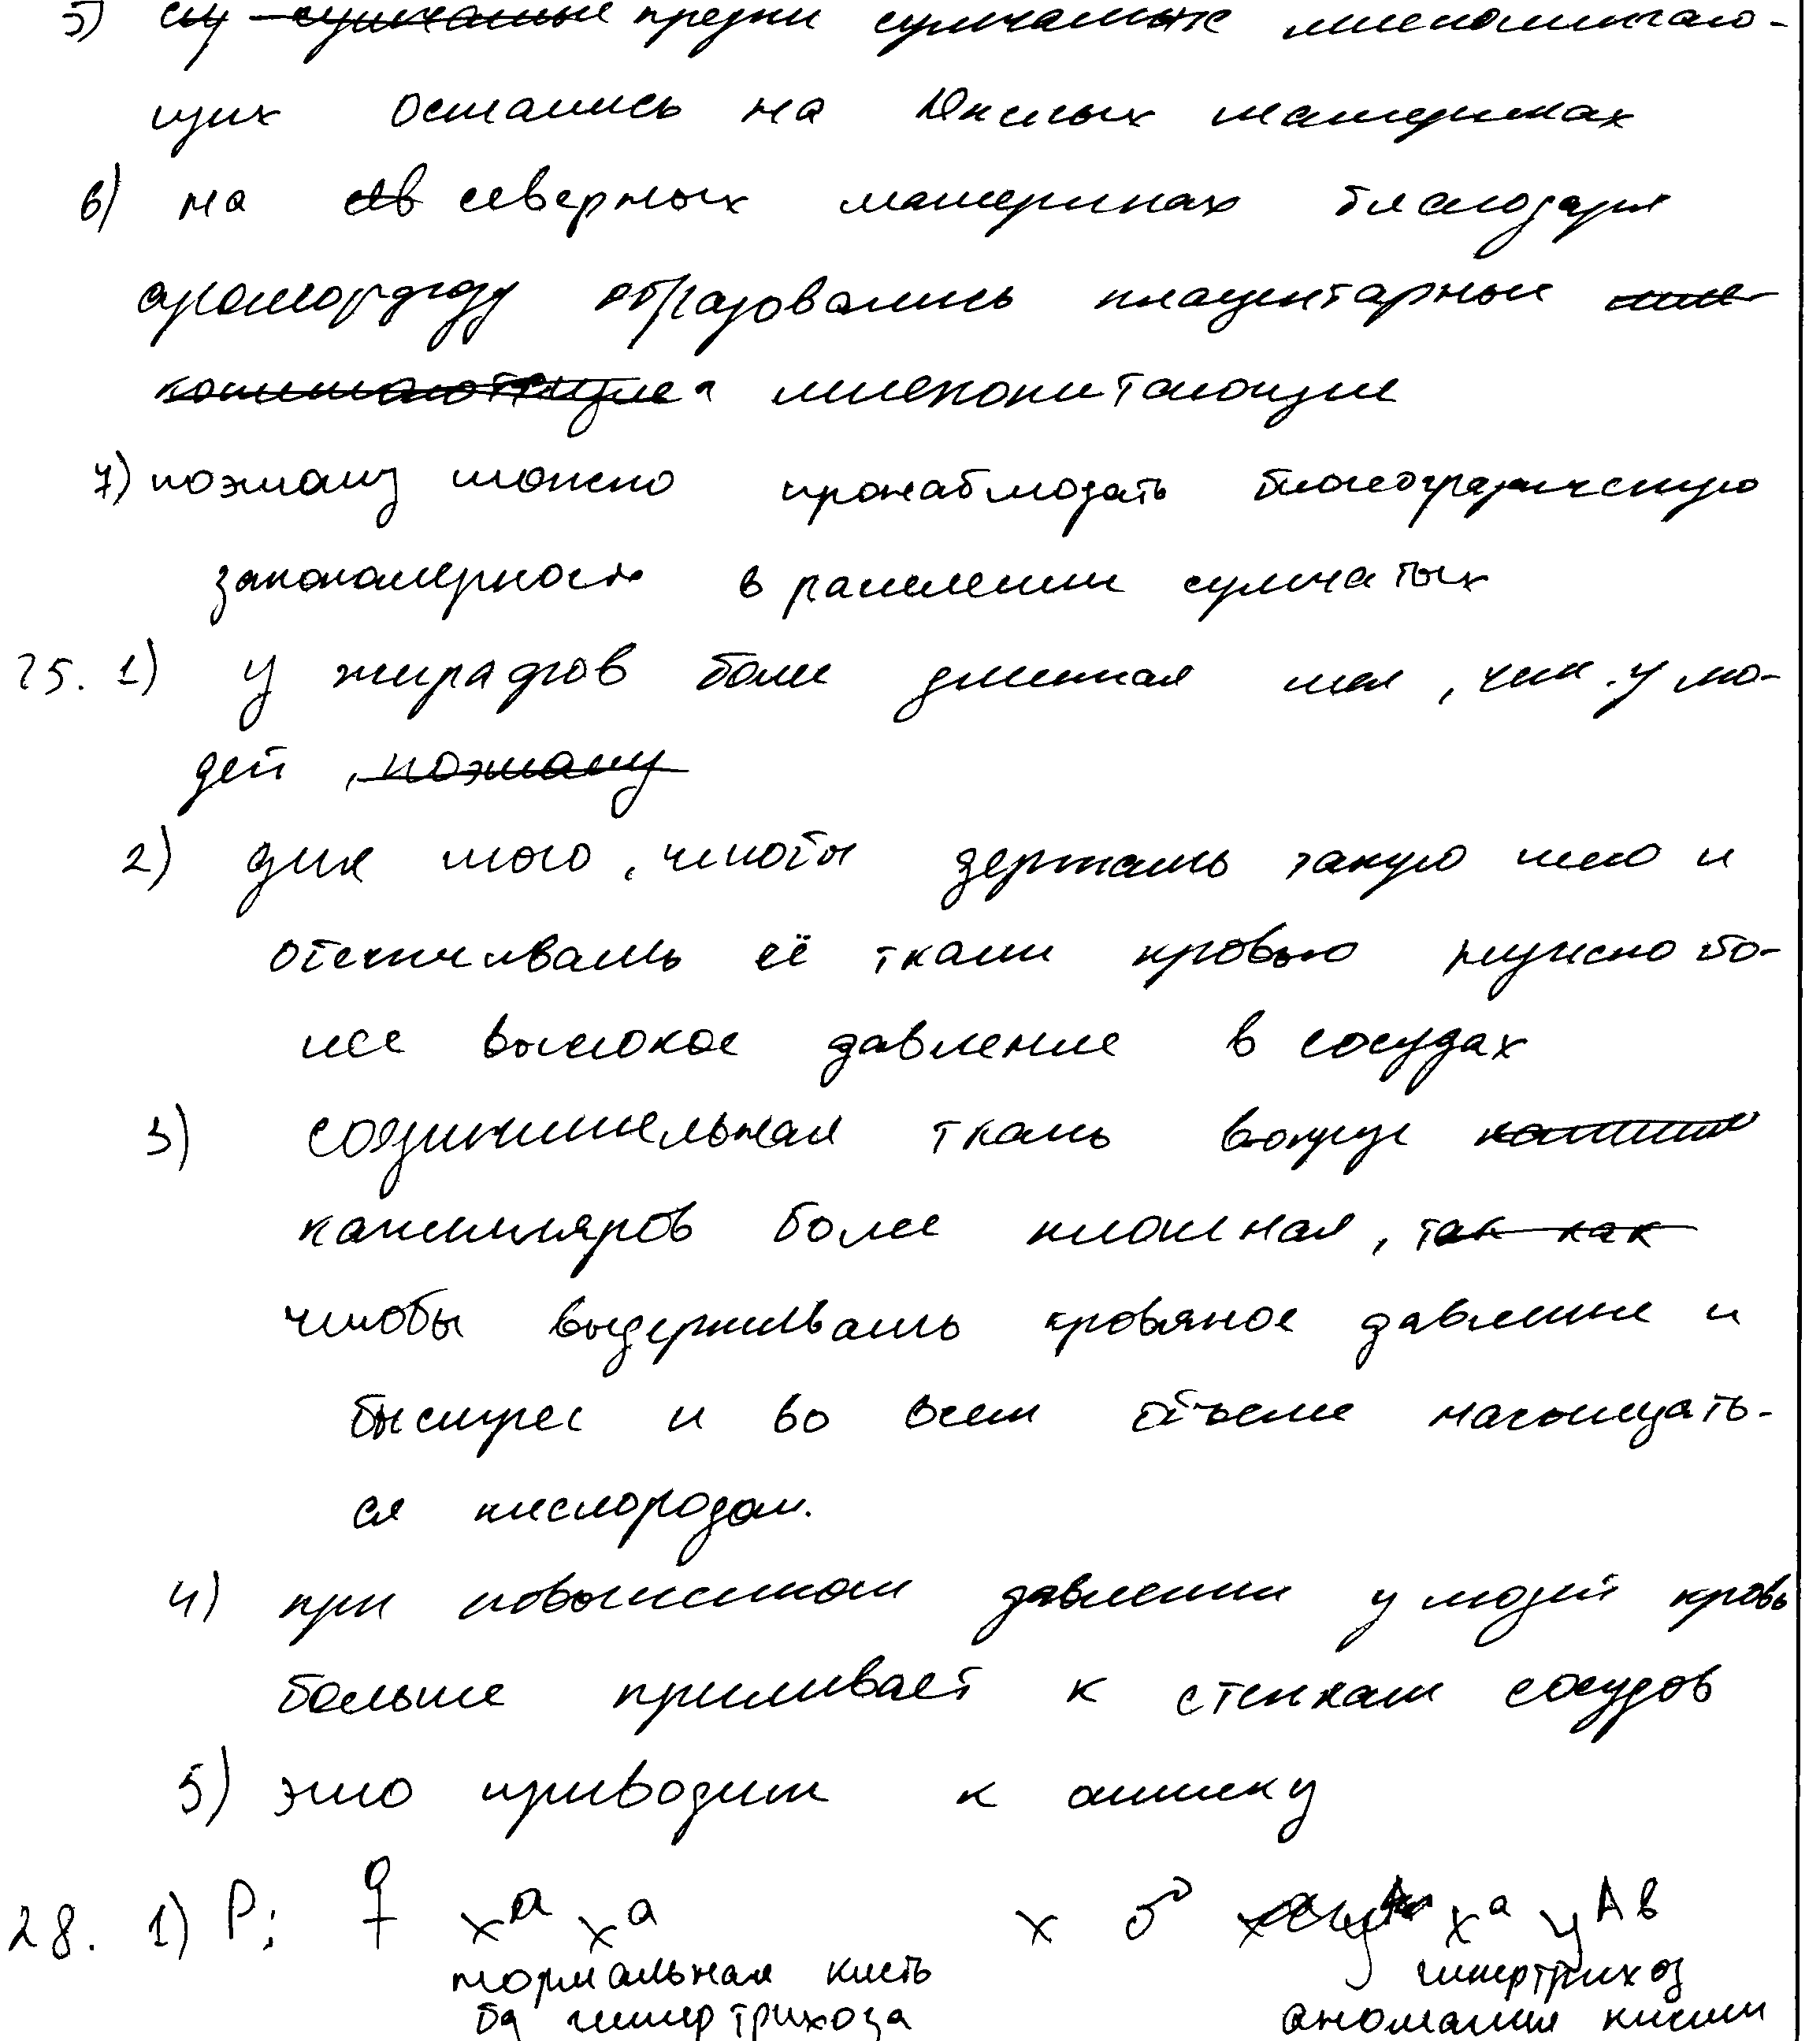 5) су сумчатые предки сумчатых млекопитаю-
щих остались на Южных материках
6) на ав северных материках благодаря
ароморфозу образовались плацентарные мле
копитающие млекопитающие
7) поэтому можно пронаблюдать биогеографическую
закономерность в расселении сумчатых
25. 1) у жирафов более длинная шея, чем у лю-
дей, поэтому
2) для того, чтобы держать такую шею и
обеспечивать её ткани кровью нужно бо-
лее высокое давление в сосудах
3) соединительная ткань вокруг капилля
капилляров более плотная, так как
чтобы выдерживать кровяное давление и
быстрее и во всем объеме насыщать-
ся кислородом.
4) при повышенном давлении у людей кровь
больше приливает к стенкам сосудов
5) это приводит к отеку
28. 1) P: ♀ xᵃ xᵃ x ♂ xᵃ yᴬᵇ
нормальная кисть гипертрихоз
без гипертрихоза аномалия кисти